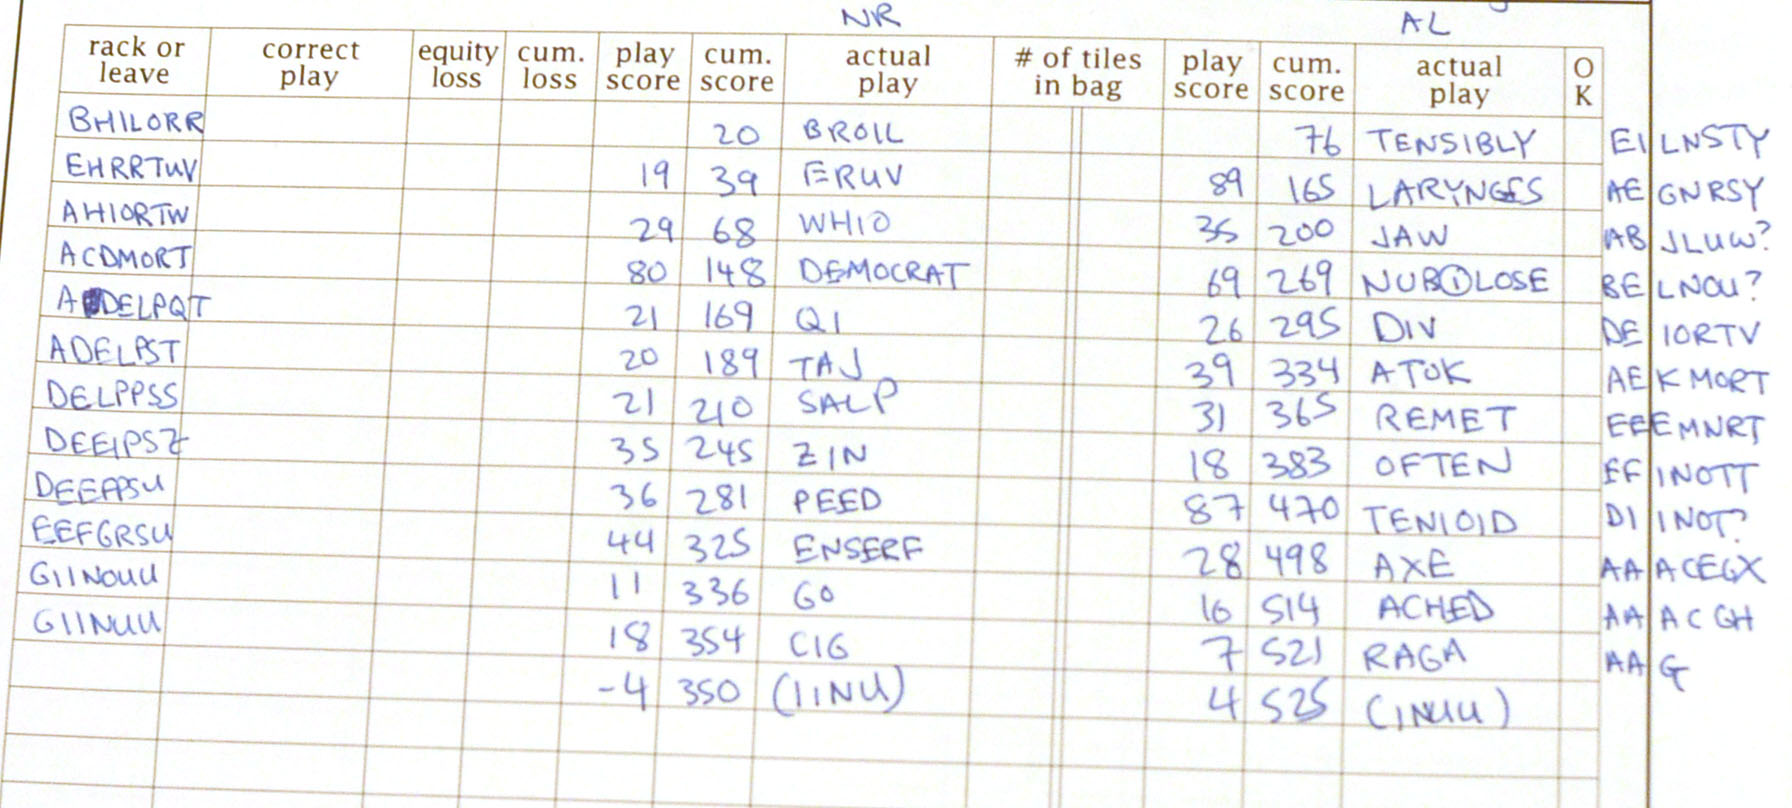 NR AL
rack or leave correct play equity loss cum. loss play score cum. score actual play # of tiles in bag play score cum. score actual play O K
BHILORR 20 BROIL 76 TENSIBLY EILNSTY
EHRRTUV 19 39 ERUV 89 165 LARYNGES AEGNRSY
AHIORTW 29 68 WHIO 35 200 JAW ABJLUW?
ACDMORT 80 148 DEMOCRAT 69 269 NUBILOSE BELNOU?
ADELPQT 21 169 QI 26 295 DIV DEIORTV
ADELPST 20 189 TAJ 39 334 ATOK AEKMORT
DELPPSS 21 210 SALP 31 365 REMET EEEMNRT
DEEIPSZ 35 245 ZIN 18 383 OFTEN EFINOTT
DEEFPSU 36 281 PEED 87 470 TENIOID DIINOT?
EEFGRSU 44 325 ENSERF 28 498 AXE AAACEGX
GIINOUU 11 336 GO 16 514 ACHED AAACGH
GIINUU 18 354 CIG 7 521 RAGA AAG
-4 350 (IINU) 4 525 (INUU)